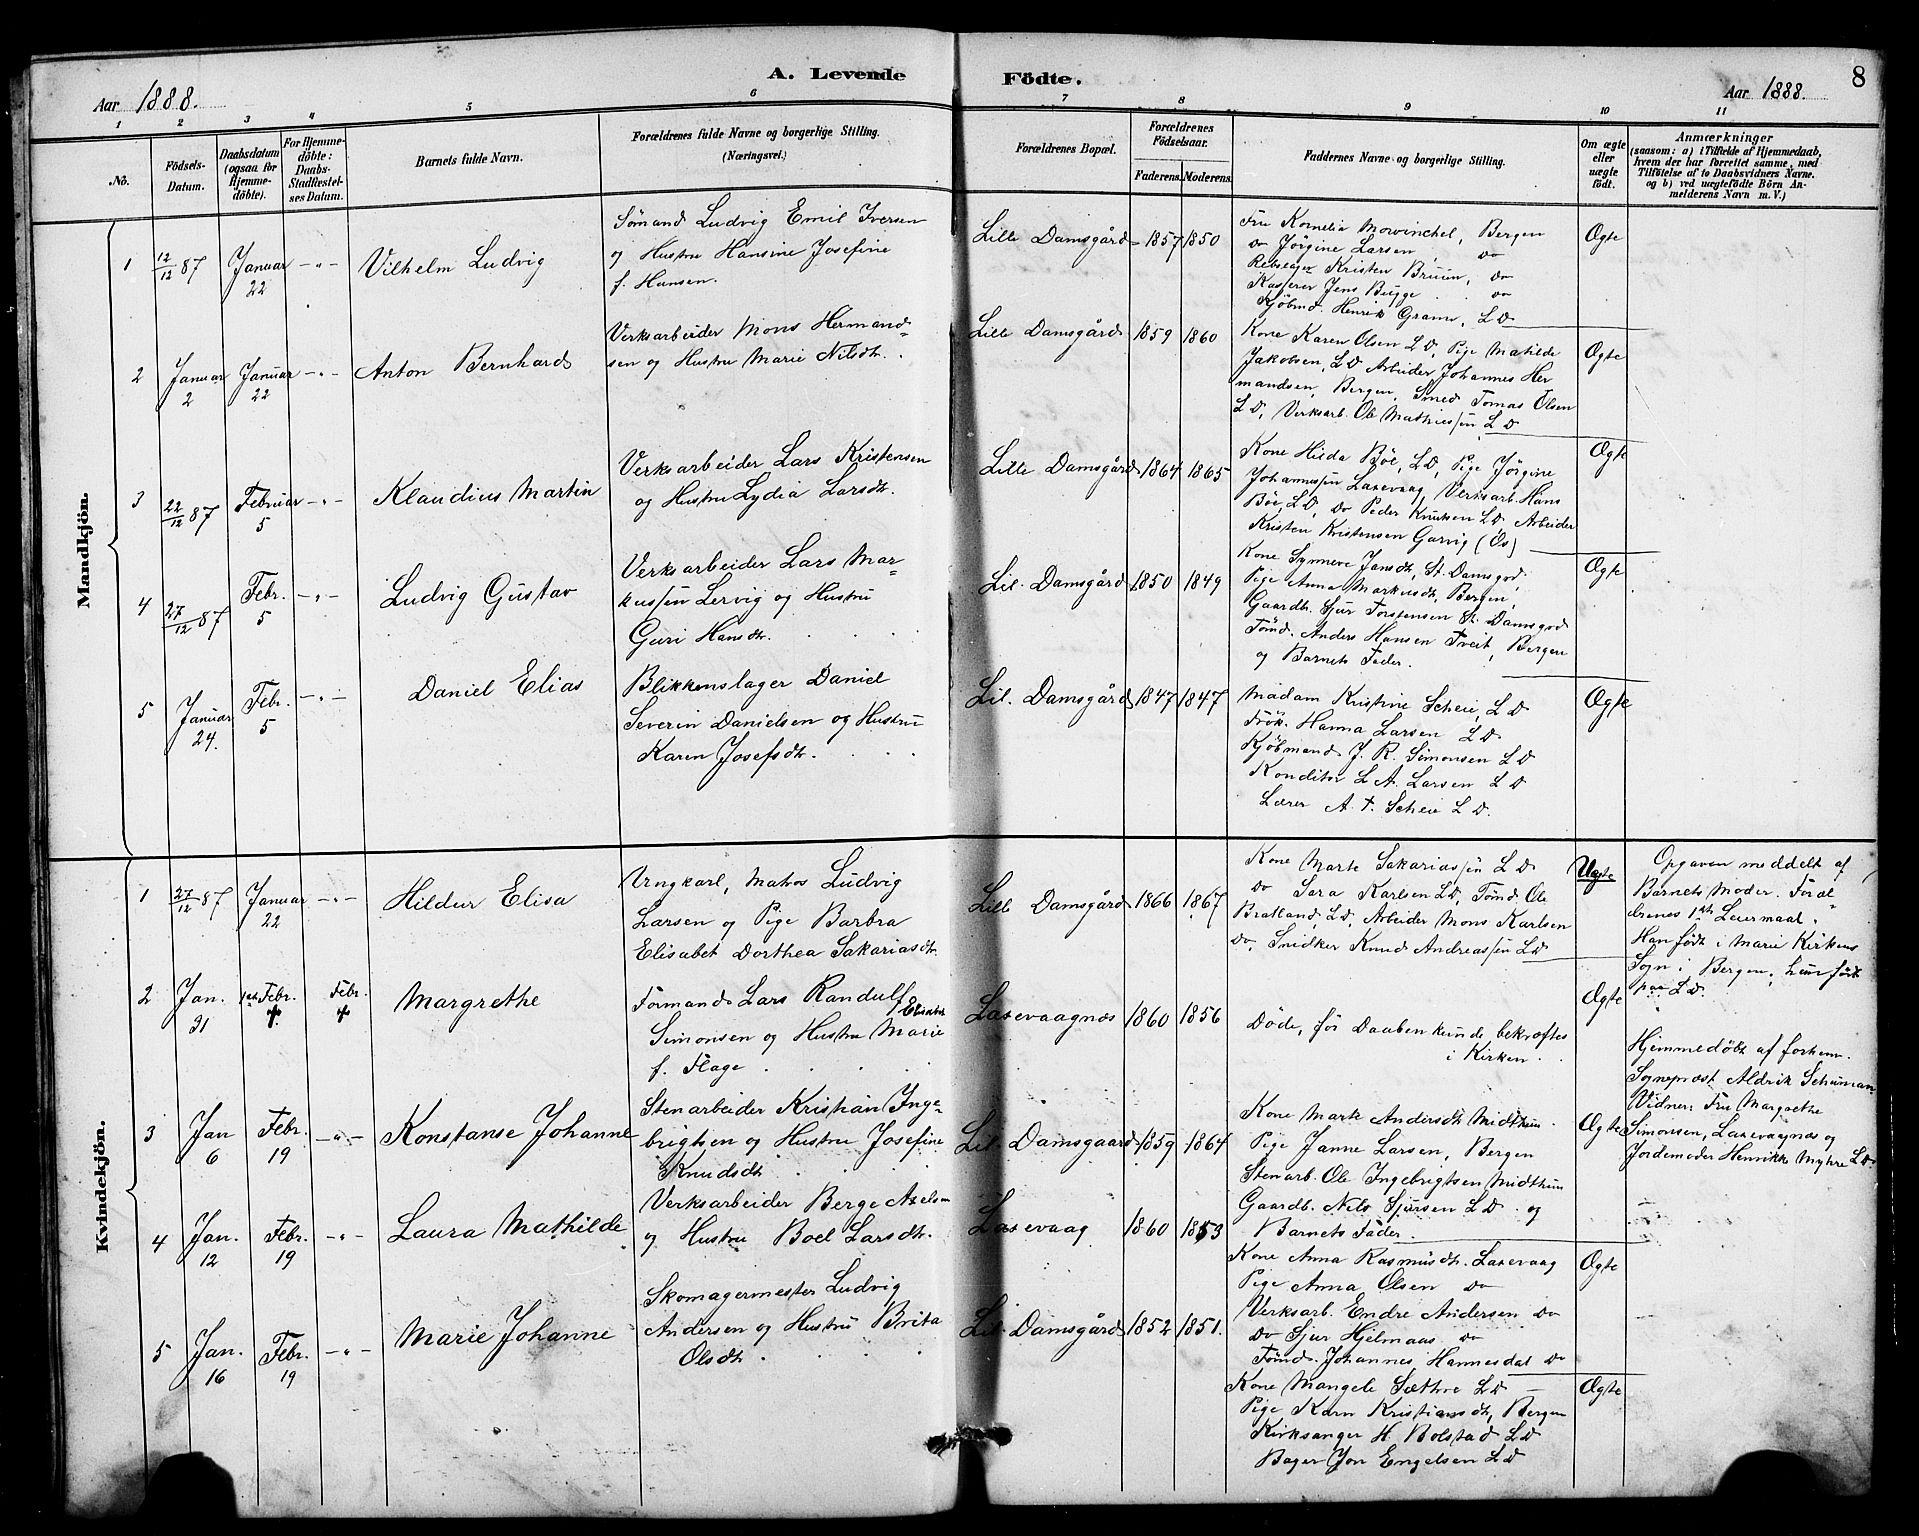 A. Levende Födte.
8
Aar 1888.
Aar 1888.
1 2 3 4 5 6 7 8 9 10 11
No.
Födsels-Datum.
Daabsdatum (ogsaa for Hjemme-döbte).
For Hjemme-döbte: Daabs-Stadfæstel-ses Datum.
Barnets fulde Navn.
Forældrenes fulde Navne og borgerlige Stilling.
(Næringsvei.)
Forældrenes Bopæl.
Forældrenes Födselsaar.
Faderens. Moderens.
Faddernes Navne og borgerlige Stilling.
Om ægte eller uægte födt.
Anmærkninger
(saasom: a) i Tilfælde af Hjemmedaab,
hvem der har forrettet samme, med
Tilföielse af to Daabsvidners Navne.
og b) ved uægtefödte Börn An-
melderens Navn m. V.)
Mandkjön.
1 12/12 87 Januar 22 -"- Vilhelm Ludvig
Sömand Ludvig Emil Iversen
og Hustru Hansine Josefine
f. Hansen.
Lille Damsgård 1857 1850
Fru Kornelia Mowinchel, Bergen
do Jörgine Larsen, do
Rebslager Kristen Bruun, do
Kasserer Jens Bugge do
Kjöbmd. Henrik Gram, L D
Ægte
2 Januar 2 Januar 22 -"- Anton Bernhard
Verksarbeider Mons Hermand-
sen og Hustru Marie Nilsdtr.
Lille Damsgård 1859 1860
Kone Karen Olsen L D, Pige Matilde
Jakobsen, L D Arbeider Johannes Her
mandsen, Bergen, Smed Tomas Olsen
L D, Verksarb. Ole Mathiessen L D
Ægte
3 22/12 87 Februar 5 -"- Klaudius Martin
Verksarbeider Lars Kristensen
og Hustru Lydia Larsdtr.
Lille Damsgård 1864 1865
Kone Hilda Böe, L D, Pige Jörgine
Johannessen Laxevaag, Verksarb. Hans
Böe, L D, do Peder Knutsen L D Arbeider
Kristen Kristensen Garvig (Os)
Ægte
4 27/12 87 Febr. 5 -"- Ludvig Gustav
Verksarbeider Lars Mar-
kussen Lervig og Hustru
Guri Hansdtr.
Lil. Damsgård 1850 1849
Kone Synneve Jansdtr, St. Damsgd;
Pige Anna Markusdtr, Bergen,
Gaardbr. Sjur Torstensen St. Damsgrd
Tömd. Anders Hansen Tveit, Bergen
og Barnets Fader.
Ægte
5 Januar 24. Febr. 5 -"- Daniel Elias
Blikkenslager Daniel
Severin Danielsen og Hustru
Karen Josefsdtr.
Lil. Damsgård 1847 1847
Madam Kristine Scheie, L D
Frök. Hanna Larsen L D
Kjöbmand J. R. Simonsen L D
Konditor L A. Larsen L D
Lærer A. T. Scheie L D.
Ægte
Kvindekjön.
1 27/12 87 Januar 22 -"- Hildur Elisa
Ungkarl, Matros Ludvig
Larsen og Pige Barbra
Elisabet Dorthea Sakariasdtr.
Lille Damsgård 1866 1867
Kone Marte Sakariassen L D
do Sara Karlsen L D, Tömd. Ole
Bratland, L D, Arbeider Mons Karlsen
do. Snidker Knud Andreassen L D
Uægte
Opgaven meddelt af
Barnets Moder. Foræl-
drenes 1ste Leiermaal.
Han födt i Marie Kirkens
Sogn i Bergen, hun födt
paa L D.
2 Jan. 31 Febr. Febr. Margrethe
Formand Lars Randulf
Simonsen og Hustru Marie
f. Flage
Laxevaagnæs 1860 1856
Döde, för Daaben kunde bekræftes
i Kirken.
Ægte
Hjemmedöbt af forhenv.
Sogneprest Aldrik Schuman
Vidner: Fru Margrethe
Simonsen, Laxevaagnæs og
Jordemoder Henrikke Myhre L D
3 Jan 6 Febr. 19 -"- Konstanse Johanne
Stenarbeider Kristian Inge-
brigtsen og Hustru Josefine
Knudsdtr
Lil Damsgaard 1859 1864
Kone Marte Andersdtr Midthun
Pige Janne Larsen, Bergen
Stenarb. Ole Ingebrigtsen Midthun
Gaardb. Nils Sjursen L D og
Barnets Fader.
Ægte
4 Jan. 12 Febr. 19 -"- Laura Mathilde
Verksarbeider Berge Axelsen
og Hustru Boel Larsdtr.
Laxevaag 1860 1853
Kone Anna Rasmusdtr. Laxevaag
Pige Anna Olsen do
Verksarb. Endre Andersen do
do Sjur Hjelmaas do
Tömd. Johannes Hannesdal do
Ægte
5 Jan. 16 Febr. 19 -"- Marie Johanne
Skomagermester Ludvig
Andersen og Hustru Brita
Olsdtr.
Lil Damsgård 1852 1851.
Kone Mangele Sæthre L D
Pige Karn Kristiansdtr, Bergen
Kirksanger H. Bolstad L D
Bager Jon Engelsen L D
Ægte